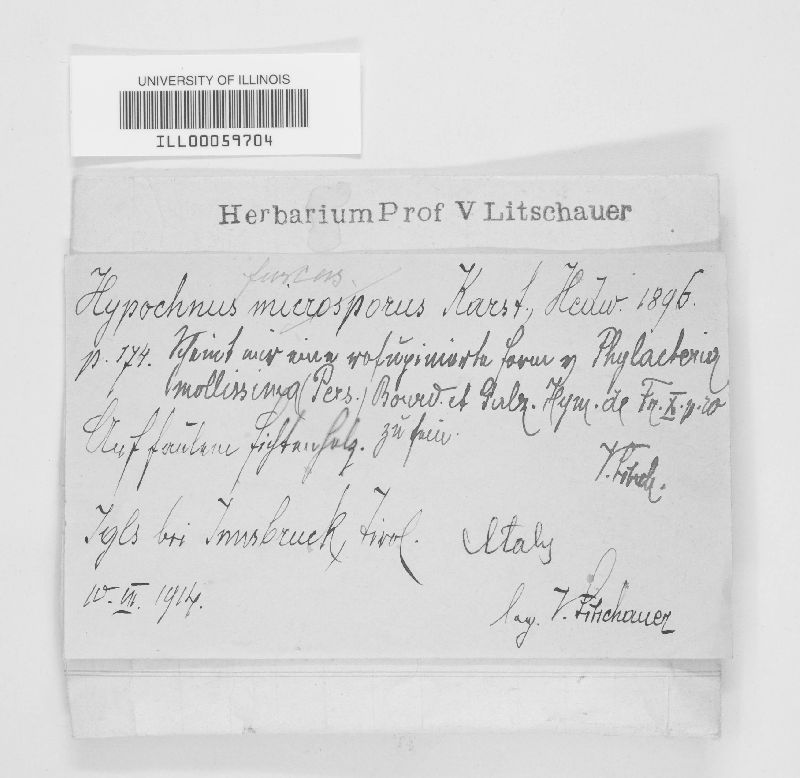 UNIVERSITY OF ILLINOIS
ILL00059704
Herbarium Prof V Litschauer
fuscus.
Hypochnus microsporus Karst., Hedw. 1896.
p. 174. Scheint mir eine resupinierte Form v Phylacteria
mollissima (Pers.) Bourd. et Galz. Hym. de Fr. X. p. 20
Auf faulem Fichtenholz. zu sein.
V. Litsch.
Igls bei Innsbruck, Tirol. Italy
10. III. 1914.
leg. V. Litschauer